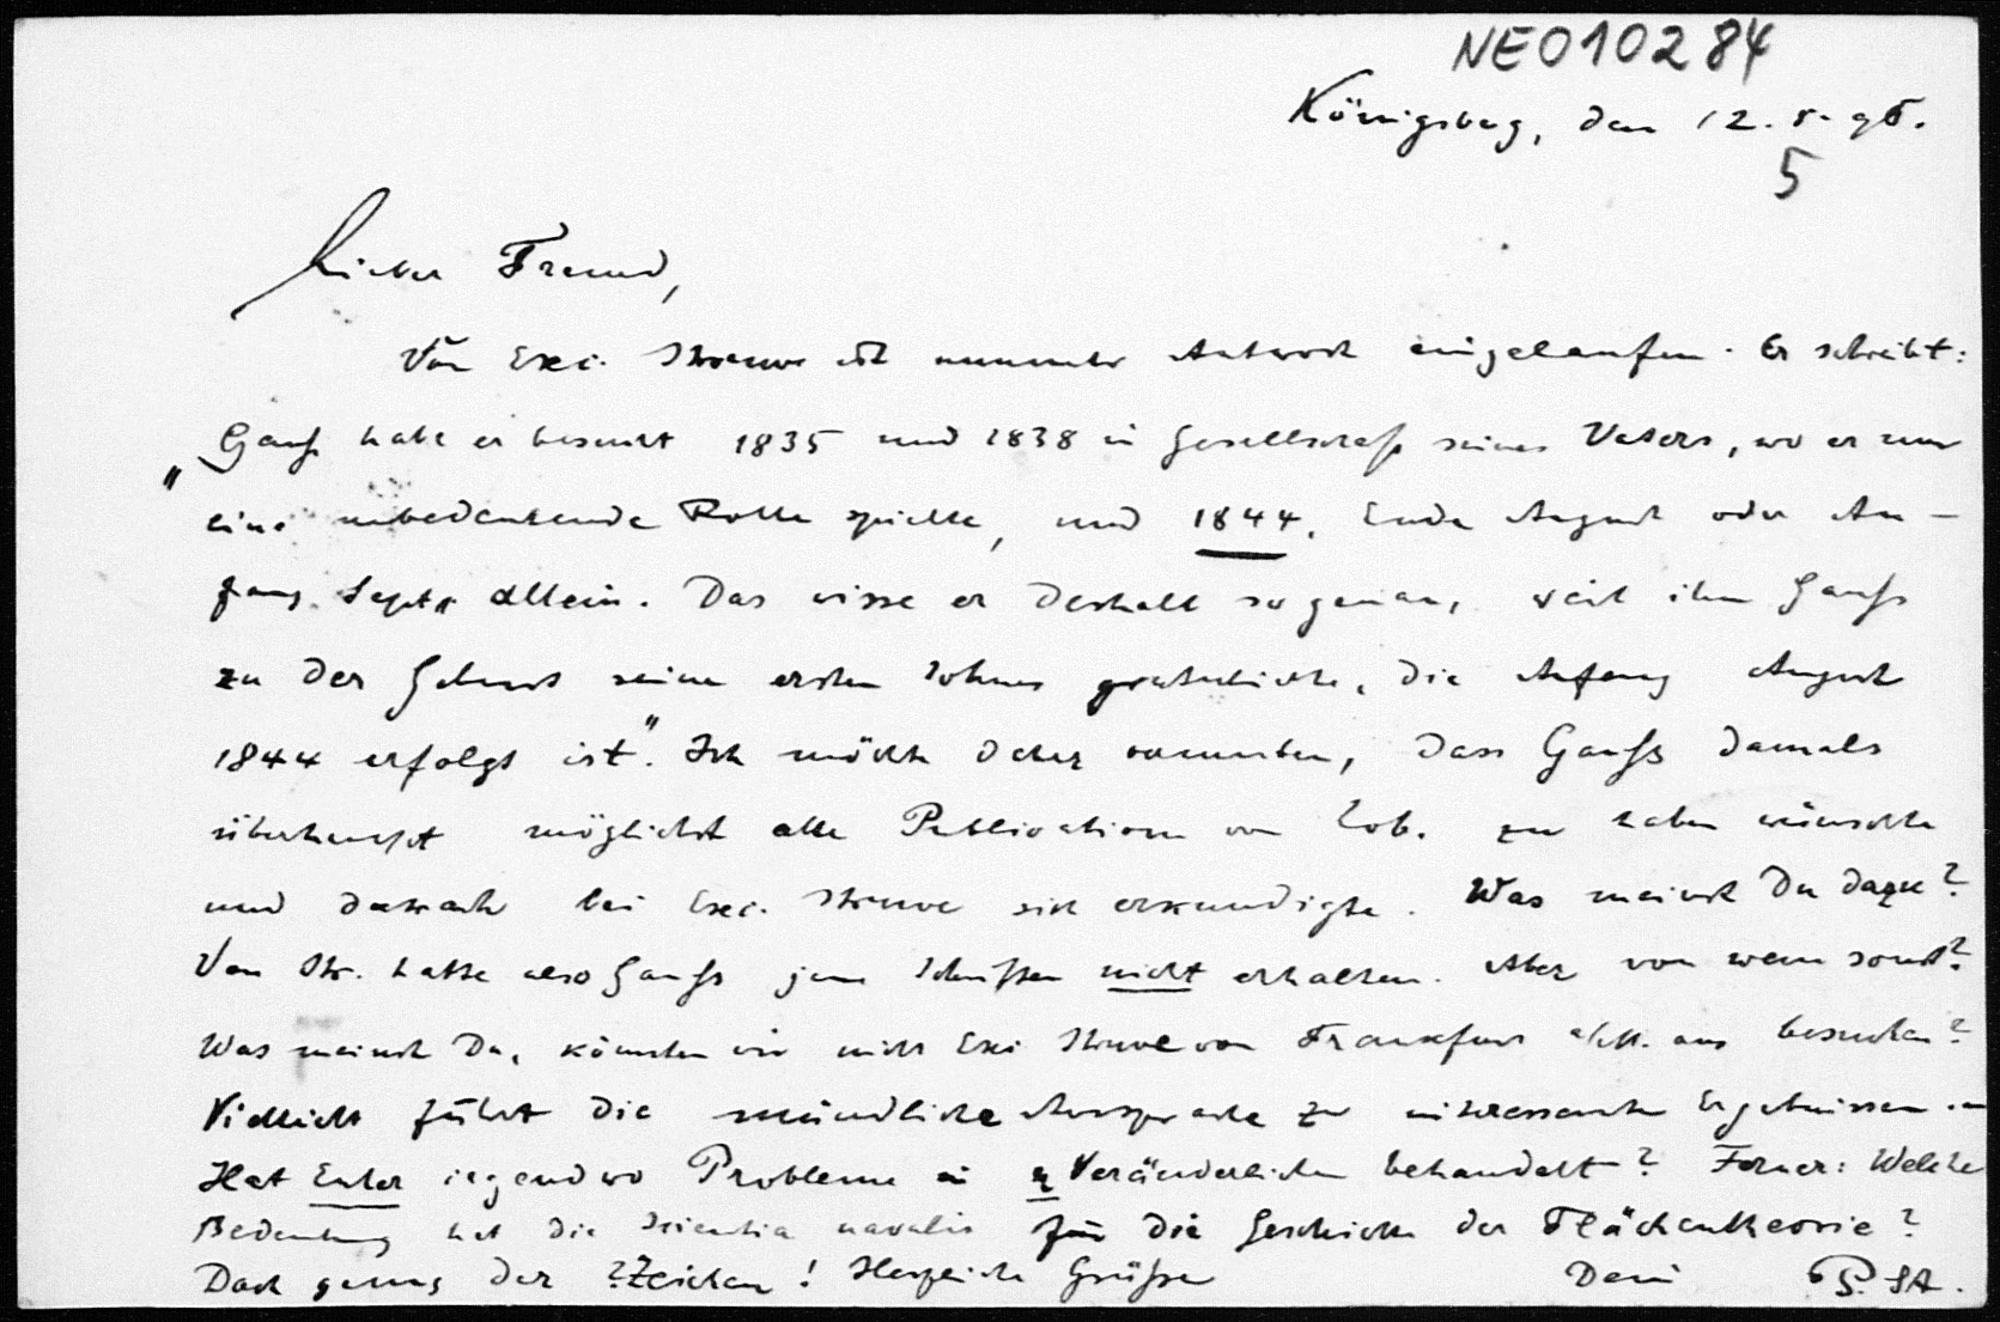 NE010284
Königsberg, den 12. 5. 96.
5
Lieber Freund,
Von Exc. Struve ist nunmehr Antwort eingelaufen. Er schreibt:
„Gauß habe er besucht 1835 und 1838 in Gesellschaft seines Vaters, wo er nur
eine unbedeutende Rolle spielte, und 1844, Ende August oder An-
fang Sept. allein. Das wisse er deshalb so genau, weil ihm Gauß
zu der Geburt seines ersten Sohnes gratulirte, die Anfang August
1844 erfolgt ist". Ich möchte daher vermuten, dass Gauß damals
überhaupt möglichst alle Publicationen von Lob. zu haben wünschte
und danach bei Exc. Struve sich erkundigte. Was meinst Du dazu?
Von Str. hatte also Gauß jene Schriften nicht erhalten. Aber von wem sonst?
Was meinst Du, könnten wir nicht Exc Struve von Frankfurt a/M. aus besuchen?
Vielleicht führt die mündliche Aussprache zu interessanten Ergebnissen.
Hat Euler irgendwo Probleme in n Veränderlichen behandelt? Ferner: Welche
Bedeutung hat die Scientia navalis für die Geschichte der Flächentheorie?
Doch genug der ?Zeichen! Herzliche Grüße Dein P. St.